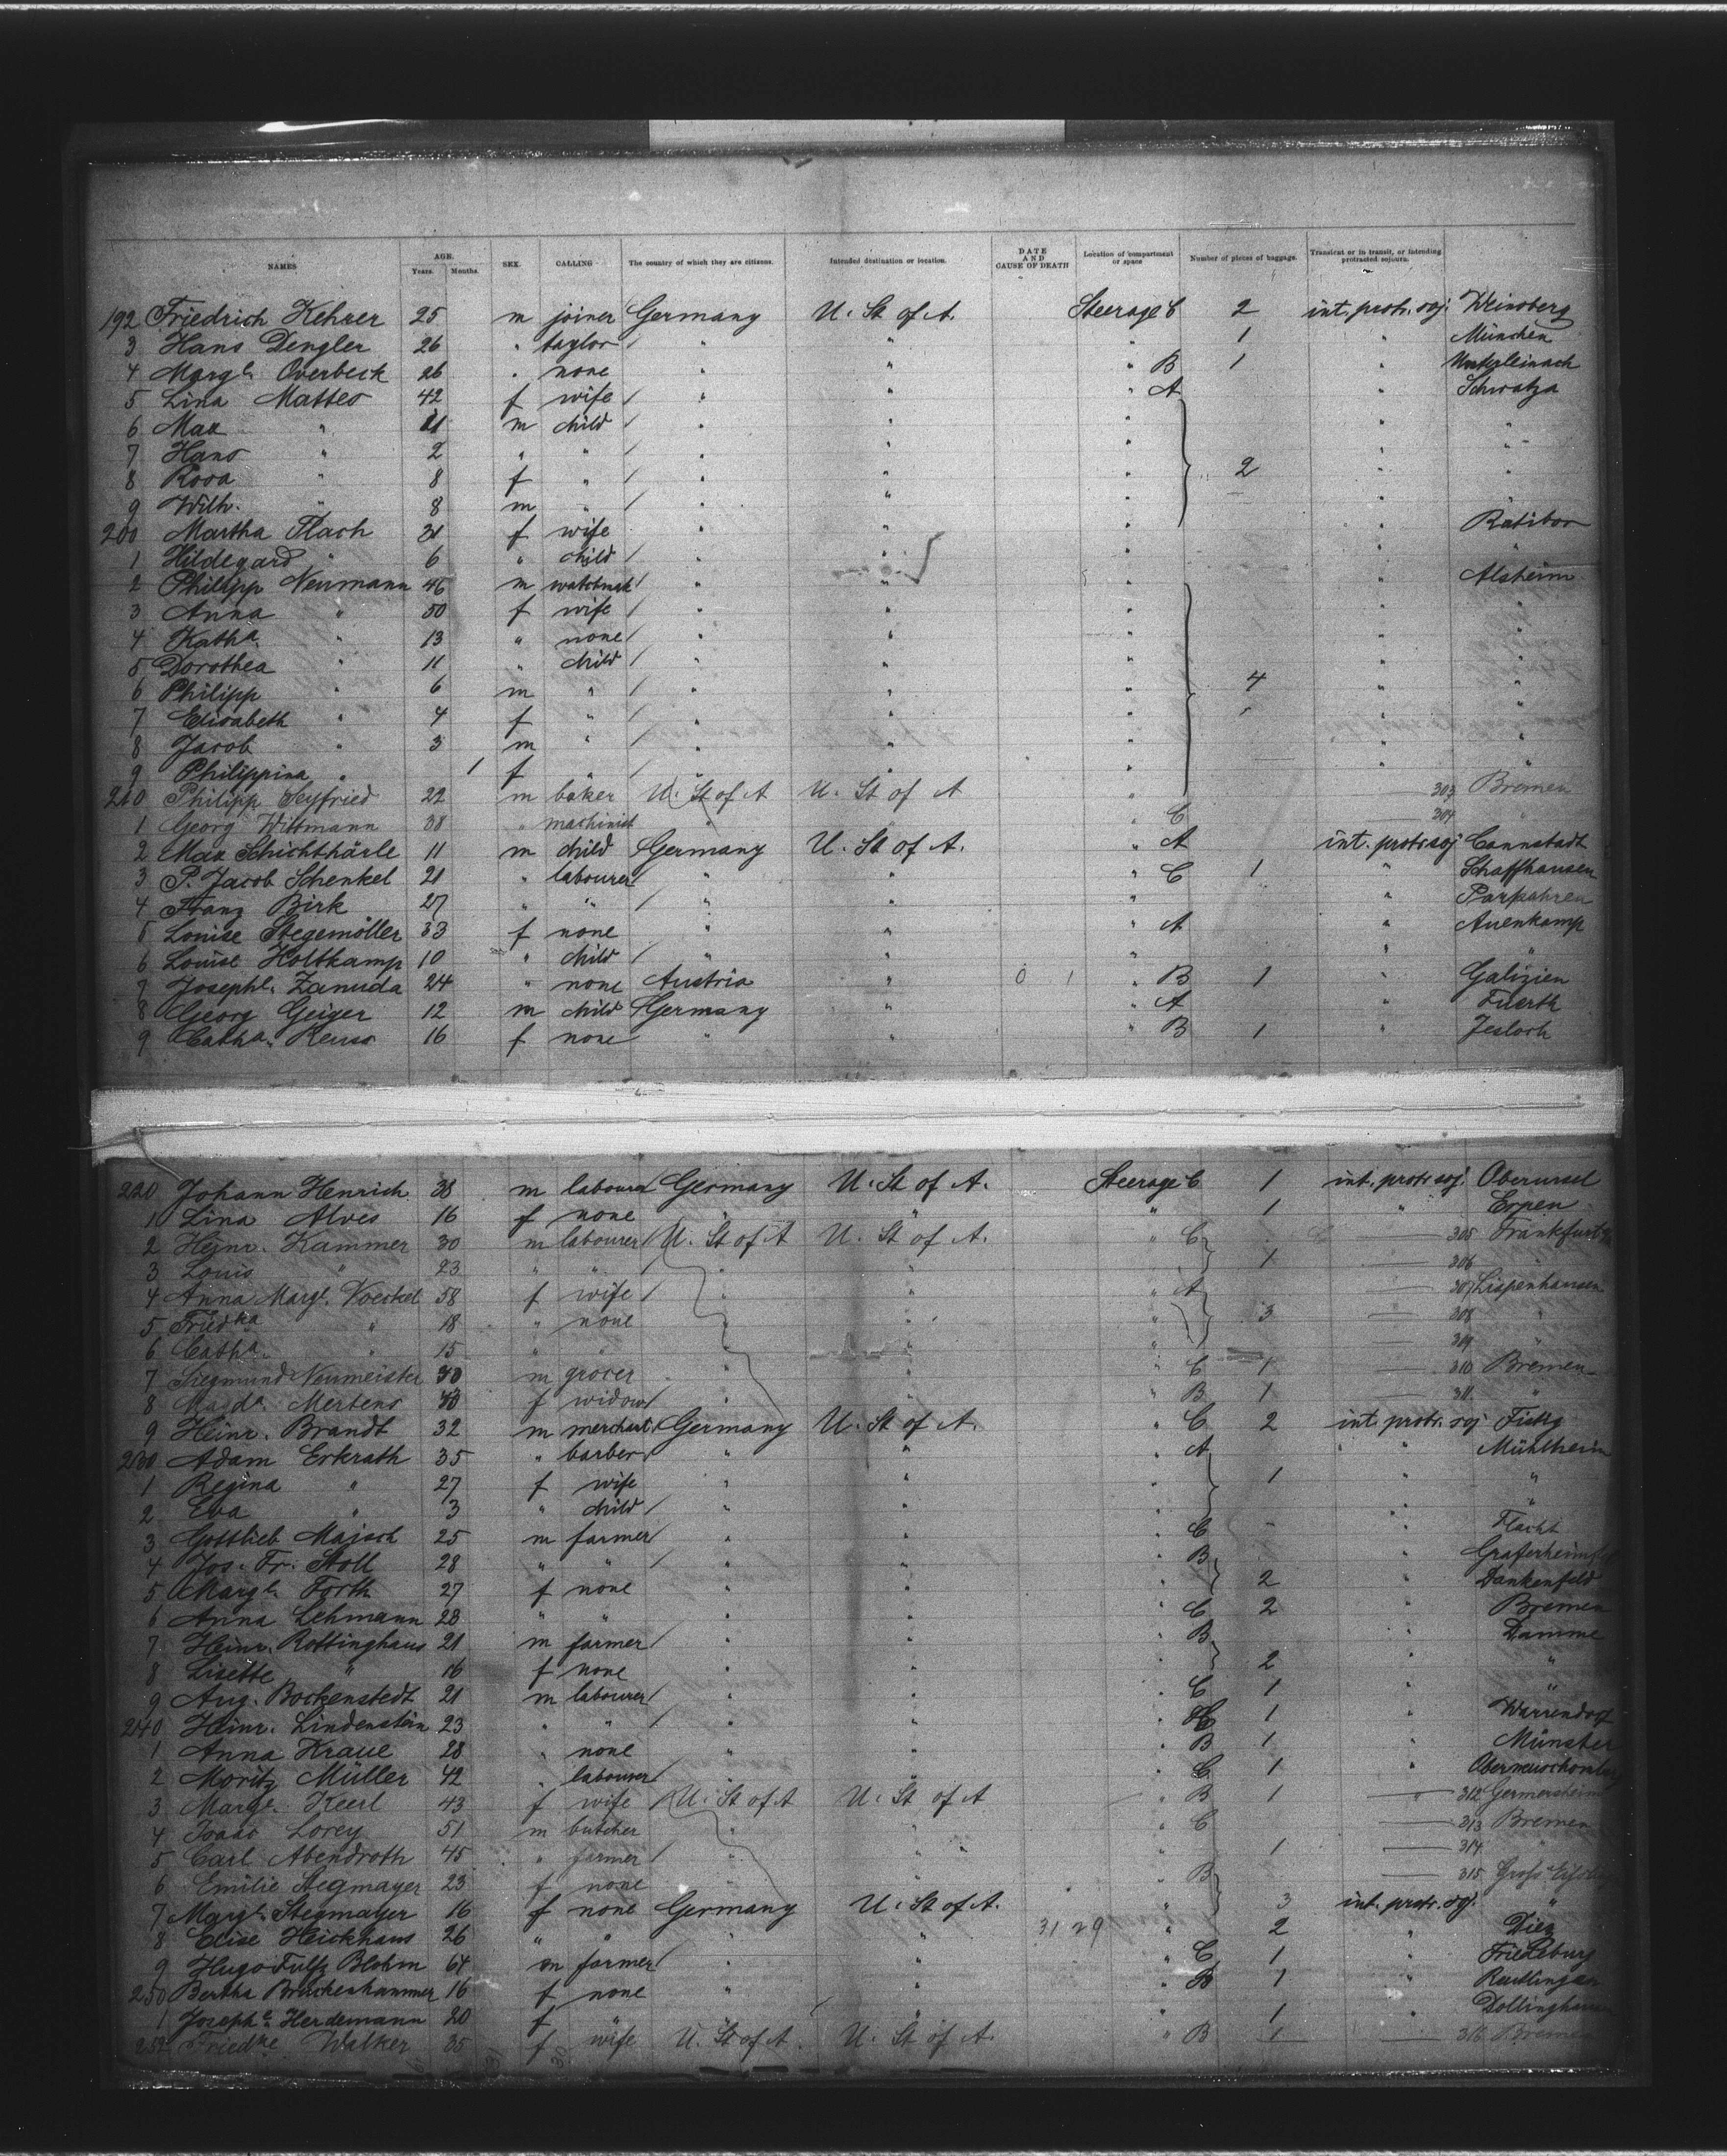 NAMES AGE. Years. Months. SEX. CALLING The country of which they are citizens. Intended destination or location. DATE AND CAUSE OF DEATH Location of compartment or space Number of pieces of baggage. Transient or in transit, or intending protracted sojourn.
192 Friedrich Kehrer 25 m joiner Germany U. St of A. Steerage C 2 int. protr. soj. Weinsberg
3 Hans Dengler 26 " taylor " " " 1 " München
4 Margt. Overbeck 26 " none " " " B 1 "
5 Lina Mattes 42 f wife " " " A "
6 Max " 11 m child " " " " "
7 Hans " 2 " " " " " " "
8 Rosa " 8 f " " " " 2 " "
9 Wilh. " 8 m " " " " " "
200 Martha Flach 31 f wife " " " " Ratibor
1 Hildegard " 6 " child " " " " "
2 Philipp Neumann 46 m " " " " Alsheim
3 Anna " 50 f wife " " " " "
4 Katha. " 13 " none " " " " "
5 Dorothea " 11 " child " " " " "
6 Philipp " 6 m " " " " 4 " "
7 Elisabeth " 4 f " " " " " "
8 Jacob " 3 m " " " " " "
9 Philippina " 1 f " " " " " "
210 Philipp Seyfried 22 m baker U. St of A U. St of A " 303 Bremen
1 Georg Wittmann 38 " machinist " " " C 304 "
2 Max Schichthärle 11 m child Germany U. St of A. " A int. protr. soj Cannstadt
3 P. Jacob Schenkel 21 " labourer " " " C 1 " Schaffhausen
4 Franz Birk 27 " " " " " "
5 Louise Stegemöller 33 f none " " " A " Auenkamp
6 Louise Holtkamp 10 " child " " " " "
7 Josephe. Zanuda 24 " none Austria " 0 1 " B 1 " Galizien
8 Georg Geiger 12 m child Germany " " A " Fuerth
9 Catha. Reuss 16 f none " " " B 1 "
220 Johann Henrich 38 m labourer Germany U. St of A. Steerage C 1 int. protr. soj. Oberursel
1 Lina Alves 16 f none " " " 1 " Erpen
2 Heinr. Kammer 30 m labourer U. St of A U. St of A. " C 1 305 Frankfurt
3 Louis " 23 " " " " " 306 "
4 Anna Margt. Voeckel 58 f wife " " " A 307 Lispenhausen
5 Friedka " 18 " none " " " 3 308 "
6 Catha. " 15 " " " " " 309 "
7 Siegmund Neumeister 30 m grocer " " " C 1 310 Bremen
8 Magda. Mertens 40 f widow " " " B 1 311 "
9 Heinr. Brandt 32 m merchant Germany U. St of A. " C 2 int. protr. soj
230 Adam Erkrath 35 " barber " " " A " Mühlheim
1 Regina " 27 f wife " " " 1 " "
2 Eva " 3 " child " " " " "
3 Gottlieb Majsch 25 m farmer " " " C " Flacht
4 Jos. Fr. Stoll 28 " " " " " B "
5 Margt. Forth 27 f none " " " 2 " Dankenfeld
6 Anna Lehmann 28 " " " " " C 2 " Bremen
7 Heinr. Rottinghaus 21 m farmer " " " B " Damme
8 Lisette " 16 f none " " " 2 " "
9 Aug. Bockenstedt 21 m labourer " " " C 1 " "
240 Heinr. Lindenstein 23 " " " " " 1 " Warrendorf
1 Anna Kraue 28 " none " " " B 1 " Münster
2 Moritz Müller 42 " labourer " " " C 1 "
3 Margt. Keerl 43 f wife U. St of A U. St of A " B 1 " 312 Germersheim
4 Isaac Lorey 51 m butcher " " " C 313 Bremen
5 Carl Abendroth 45 " farmer " " 1 314 "
6 Emilie Stegmayer 23 f none " " " B 315 Gross
7 Margt. Stegmayer 16 f none Germany U. St of A. " 3 int. protr. soj. "
8 Elise Heickhaus 26 " " " " 31 29 " 2 " Diez
9 Hugo Fulfs Blohm 64 m farmer " " " C 1 " Friedeburg
250 Bertha Brückenhammer 16 f none " " " B 1 " Reutlingen
1 Josephe. Herdemann 20 f " " " " 1 "
252 Friedke Walker 35 f wife U. St of A. U. St of A. " B 1 316 Bremen